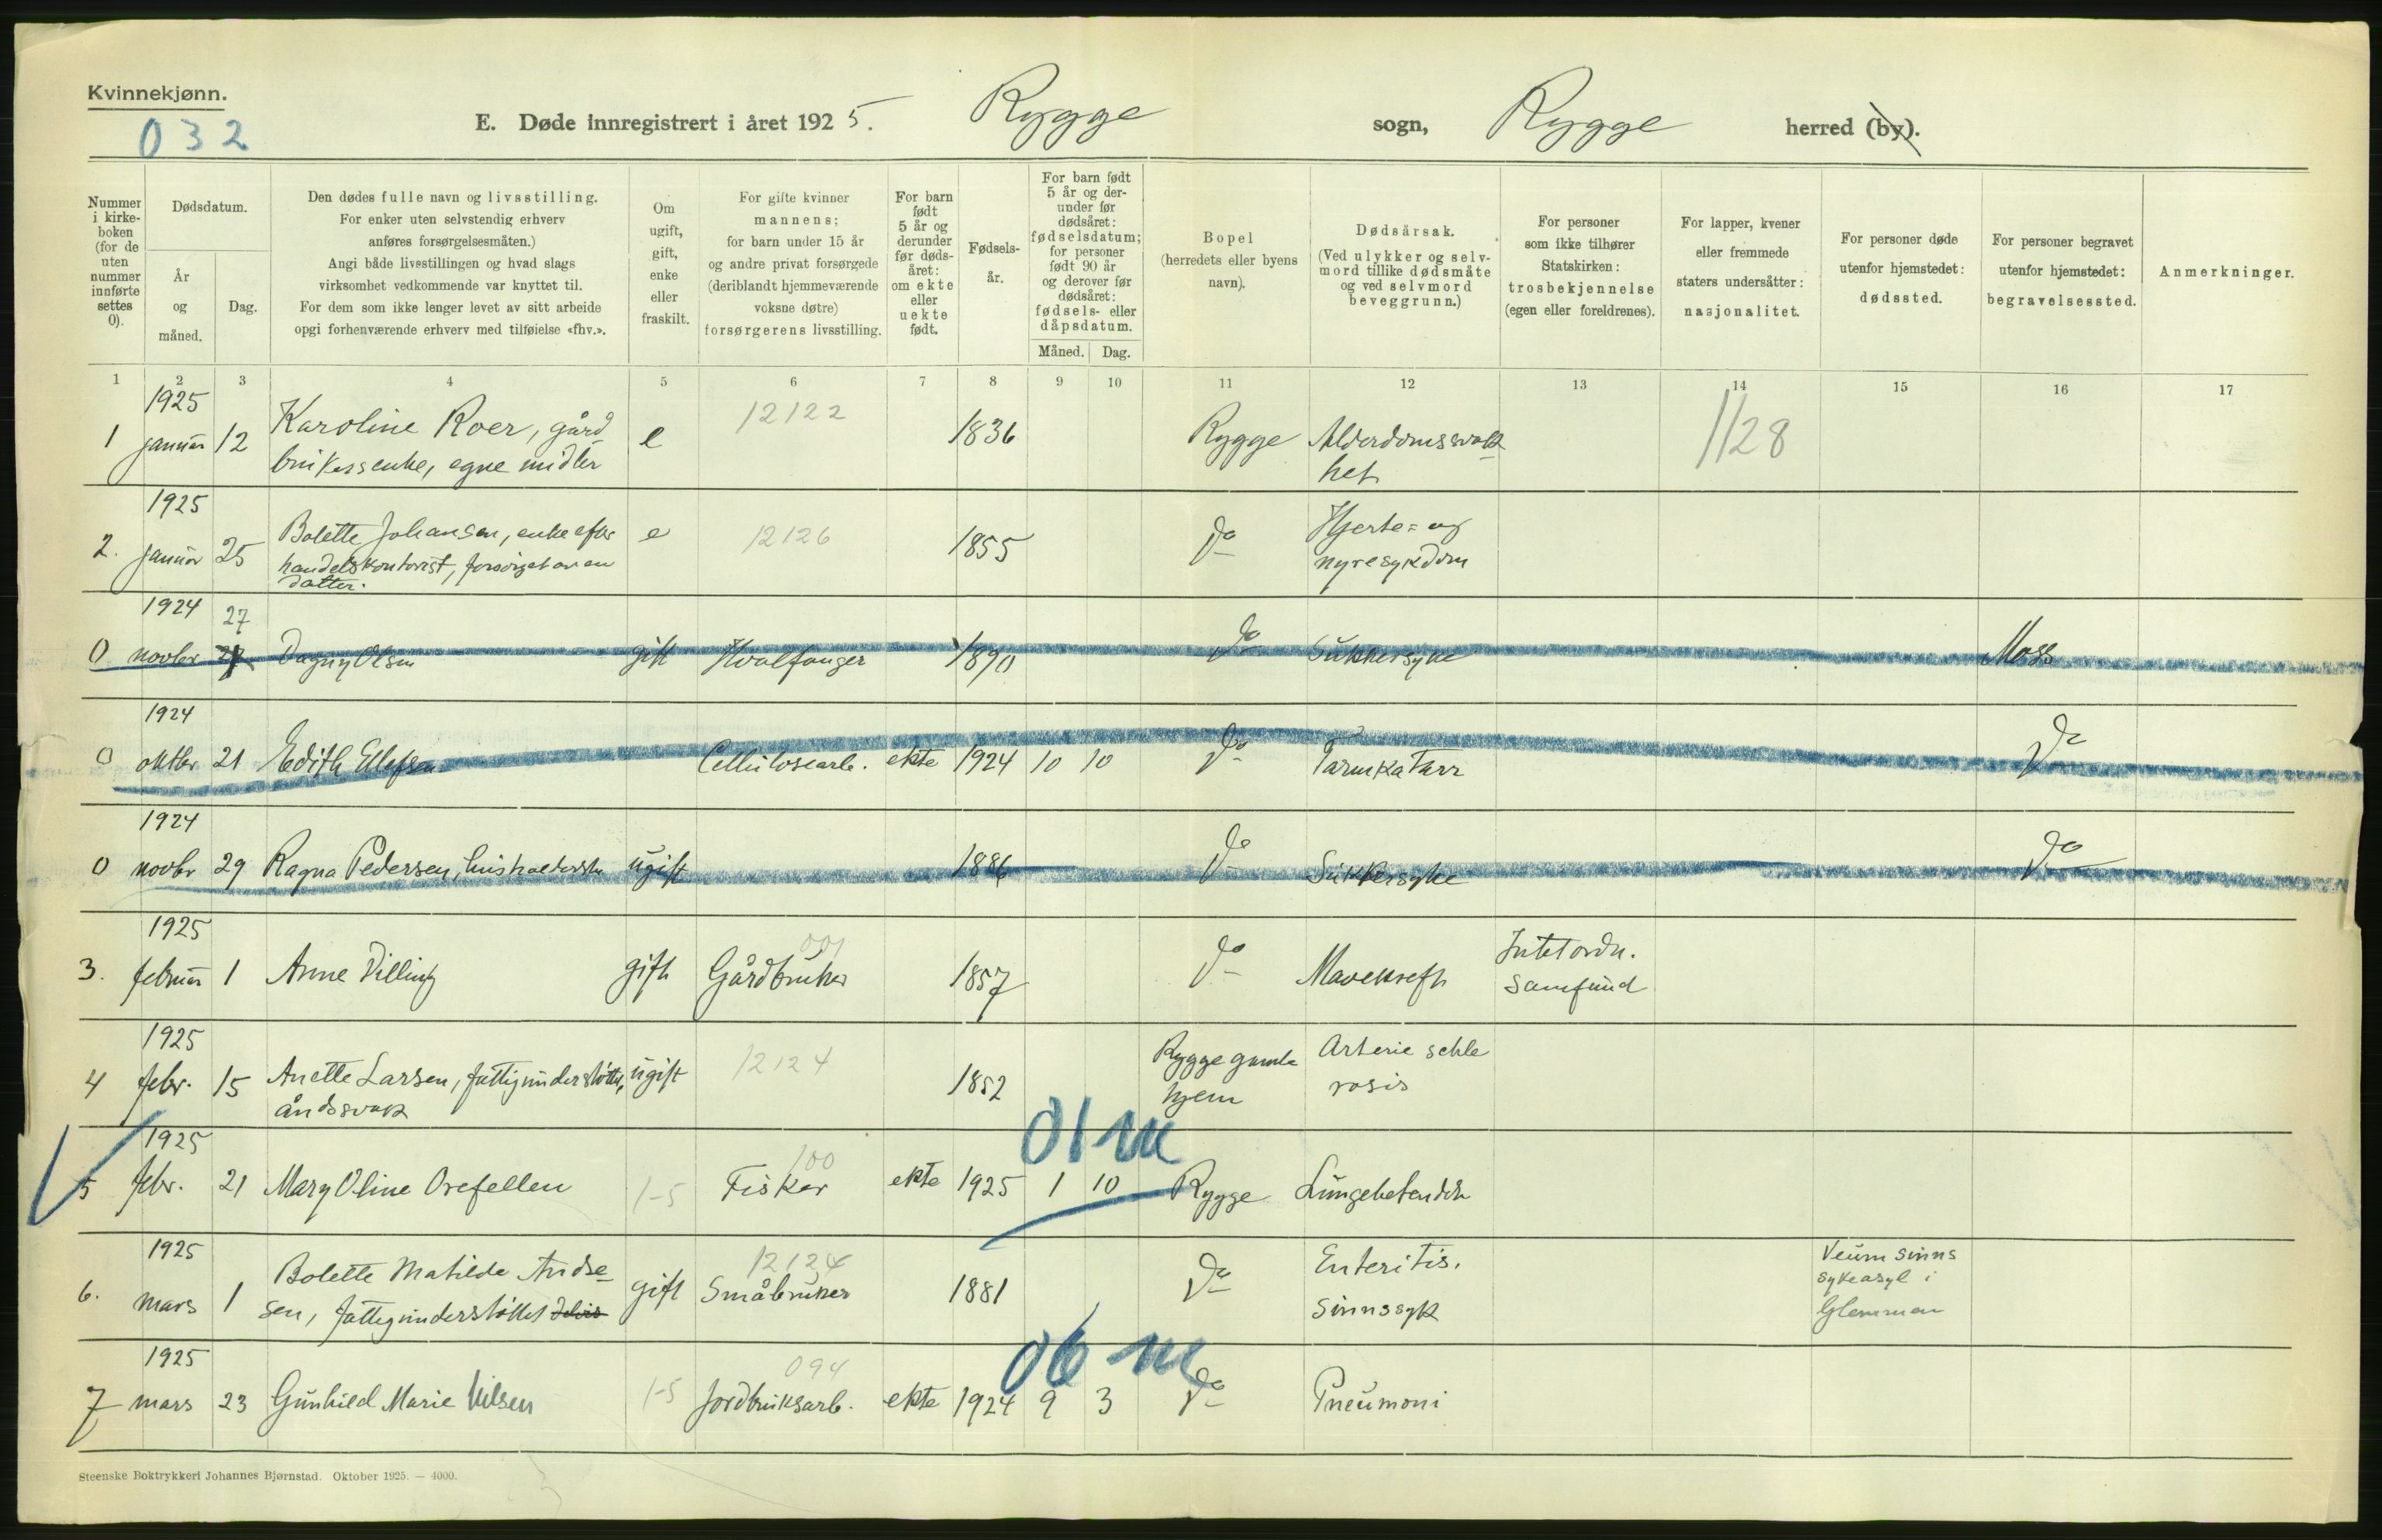 Kvinnekjønn.
032
E. Døde innregistrert i året 1925. Rygge sogn, Rygge herred (by).
Nummer i kirke-boken (for de uten nummer innførte settes 0).
Dødsdatum.
År og måned.
Dag.
Den dødes fulle navn og livsstilling.
For enker uten selvstendig erhverv
anføres forsørgelsesmåten.)
Angi både livsstillingen og hvad slags
virksomhet vedkommende var knyttet til.
For dem som ikke lenger levet av sitt arbeide
opgi forhenværende erhverv med tilføielse «fhv.».
Om ugift, gift, enke eller fraskilt.
For gifte kvinner
mannens;
for barn under 15 år
og andre privat forsørgede
(deriblandt hjemmeværende
voksne døtre)
forsørgerens livsstilling.
For barn født 5 år og derunder før døds-året: om ekte eller uekte født.
Fødsels-år.
For barn født
5 år og der-
under før
dødsåret:
fødselsdatum;
for personer
født 90 år
og derover før
dødsåret:
fødsels- eller
dåpsdatum.
Måned. Dag.
Bopel
(herredets eller byens
navn).
Dødsårsak.
(Ved ulykker og selv-
mord tillike dødsmåte
og ved selvmord
beveggrunn.)
For personer
som ikke tilhører
Statskirken:
trosbekjennelse
(egen eller foreldrenes).
For lapper, kvener
eller fremmede
staters undersåtter:
nasjonalitet.
For personer døde
utenfor hjemstedet:
dødssted.
For personer begravet
utenfor hjemstedet:
begravelsessted.
Anmerkninger.
1 2 3 4 5 6 7 8 9 10 11 12 13 14 15 16 17
1925
1 januar 12 Karoline Roer, gård e 12122 1836 Rygge Alderdomssvak 1128
brukersenke, egne midler het
1925
2. januar 25 Bolette Johansen, enke efter e 12126 1855 do Hjerte= og
handelskontorist, forsørget av en nyresykdom
datter.
1924 27
0 novbr 27 Dagny Olsen gift Hvalfanger 1890 do Sukkersyke Moss
1924
0 oktbr 21 Edith Ellefsen Cellulosearb. ekte 1924 10 10 do Tarmkatarr do
1924
0 novbr 29 Ragna Pedersen, ugift 1886 do Sukkersyke do
1925
3. februar 1 Anne Dilling gift Gårdbruker 001 1857 do Mavekreft Intet ordn.
samfund
1925
4 febr. 15 Anette Larsen, fattigunderstøttet, ugift 12124 1852 Rygge gamle Arterie schle
åndssvak hjem rosis
1925 01 m
5 febr. 21 Mary Oline Orefellen 1-5 Fisker 100 ekte 1925 1 10 Rygge Lungebetendelse
1925
6. mars 1 Bolette Matilde Andre- gift 12124 Småbruker 1881 do Enteritis. Veum sinns
sen, fattigunderstøttet delvis Sinnssyk sykeasyl i
Glemmen
1925 06 m
7 mars 23 Gunhild Marie Nilsen 1-5 094 Jordbruksarb. ekte 1924 9 3 do Pneumoni
Steenske Boktrykkeri Johannes Bjørnstad. Oktober 1925. — 4000.